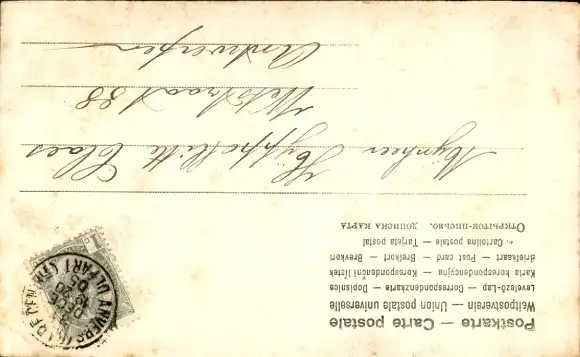 Postkarte — Carte postale
Weltpostverein — Union postale universelle
Levelezö-Lap — Correspondenzkarte — Dopisnice
Karta korespondencyjna — Korespondenční lístek
Briefkaart — Post card — Brefkort — Brevkort
Cartolina postale — Tarjeta postal
Открытое-письмо. дописна карта
Mynheer Hyppoliette Claes
Wetstraat 88
Antwerpen
ANVERS (GARE CEN
DÉPART